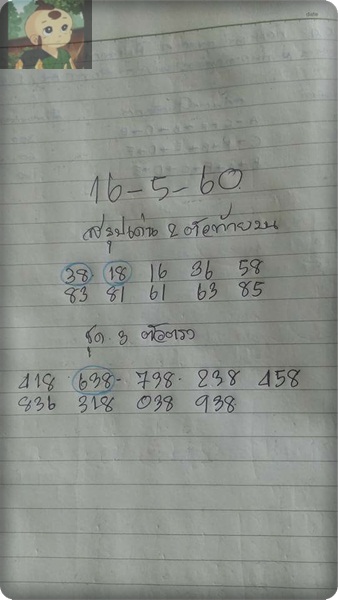 date
16-5-60
สรุปเด่น 2 ตัวท้ายบน
38 18 16 36 58
83 81 61 63 85
ชุด 3 ตัวตรง
418 638 738 238 458
836 318 038 938